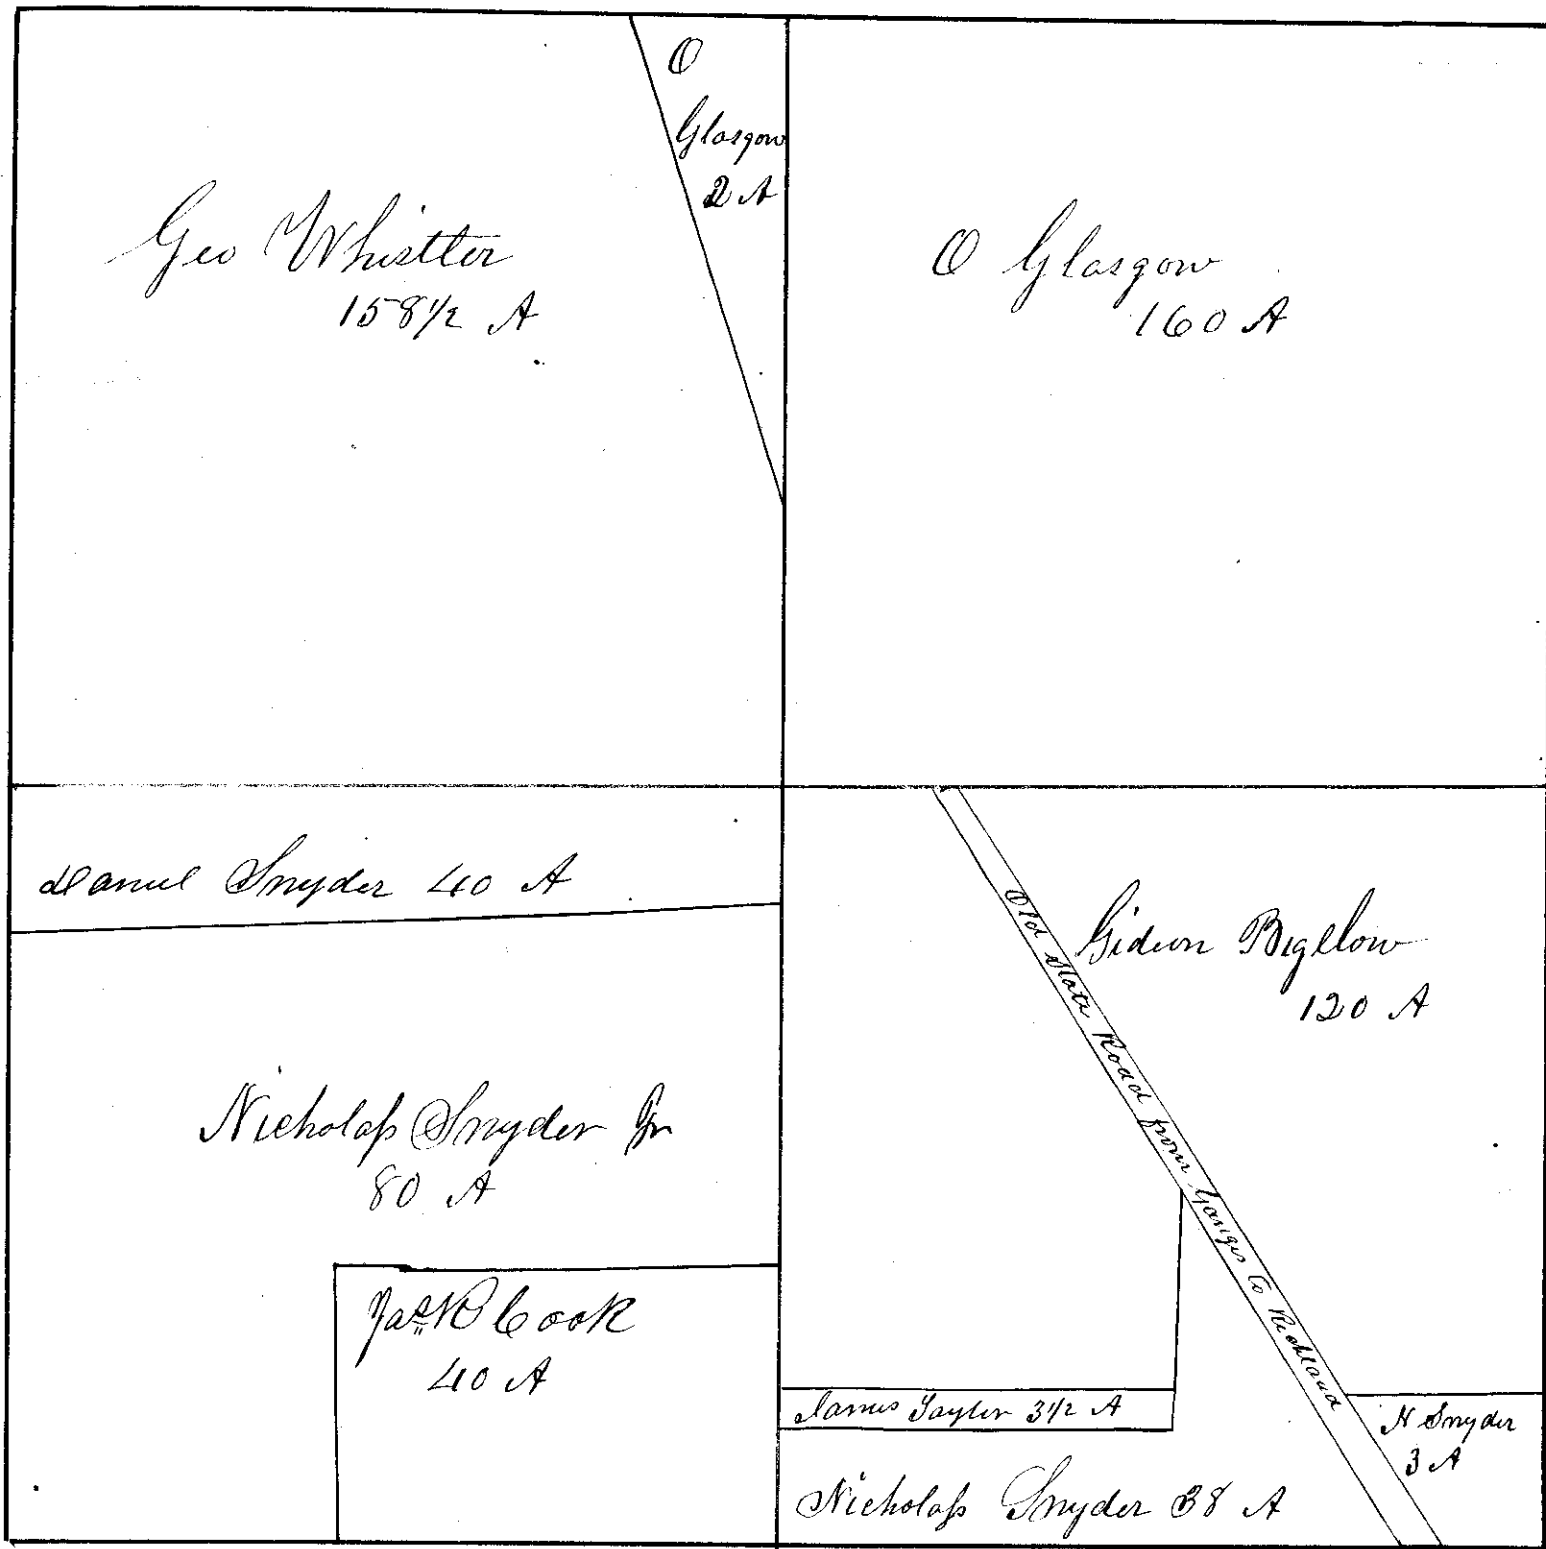 Geo Whistler
158 1/2 A
O
Glasgow
2 A
O Glasgow
160 A
Daniel Snyder 40 A
Nicholass Snyder Jr
80 A
Jas R Cook
40 A
Old State Road from Ganges to Richland
Gideon Bigelow
120 A
James Taylor 3 1/2 A
N Snyder
3 A
Nicholass Snyder 38 A